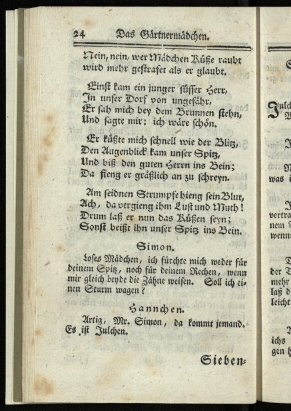 24 Das Gärtnermädchen.
Nein, nein, wer Mädchen Küße raubt
wird mehr gestrafet als er glaubt.
Einst kam ein junger süsser Herr,
In unser Dorf von ungefähr,
Er sah mich bey dem Brunnen stehn,
Und sagte mir: ich wäre schön.
Er küßte mich schnell wie der Blitz,
Den Augenblick kam unser Spitz,
Und biß den guten Herrn ins Bein;
Da fieng er gräßlich an zu schreyn.
Am seidnen Strumpfe hieng sein Blut,
Ach, da vergieng ihm Lust und Muth!
Drum laß er nun das Küßen seyn;
Sonst beißt ihn unser Spitz ins Bein.
Simon.
Loses Mädchen, ich fürchte mich weder für
deinem Spitz, noch für deinem Rechen, wenn
mir gleich beyde die Zähne weisen. Soll ich ei-
nen Sturm wagen?
Hannchen.
Artig, Mr. Simon, da kommt jemand.
Es ist Julchen.
Sieben-